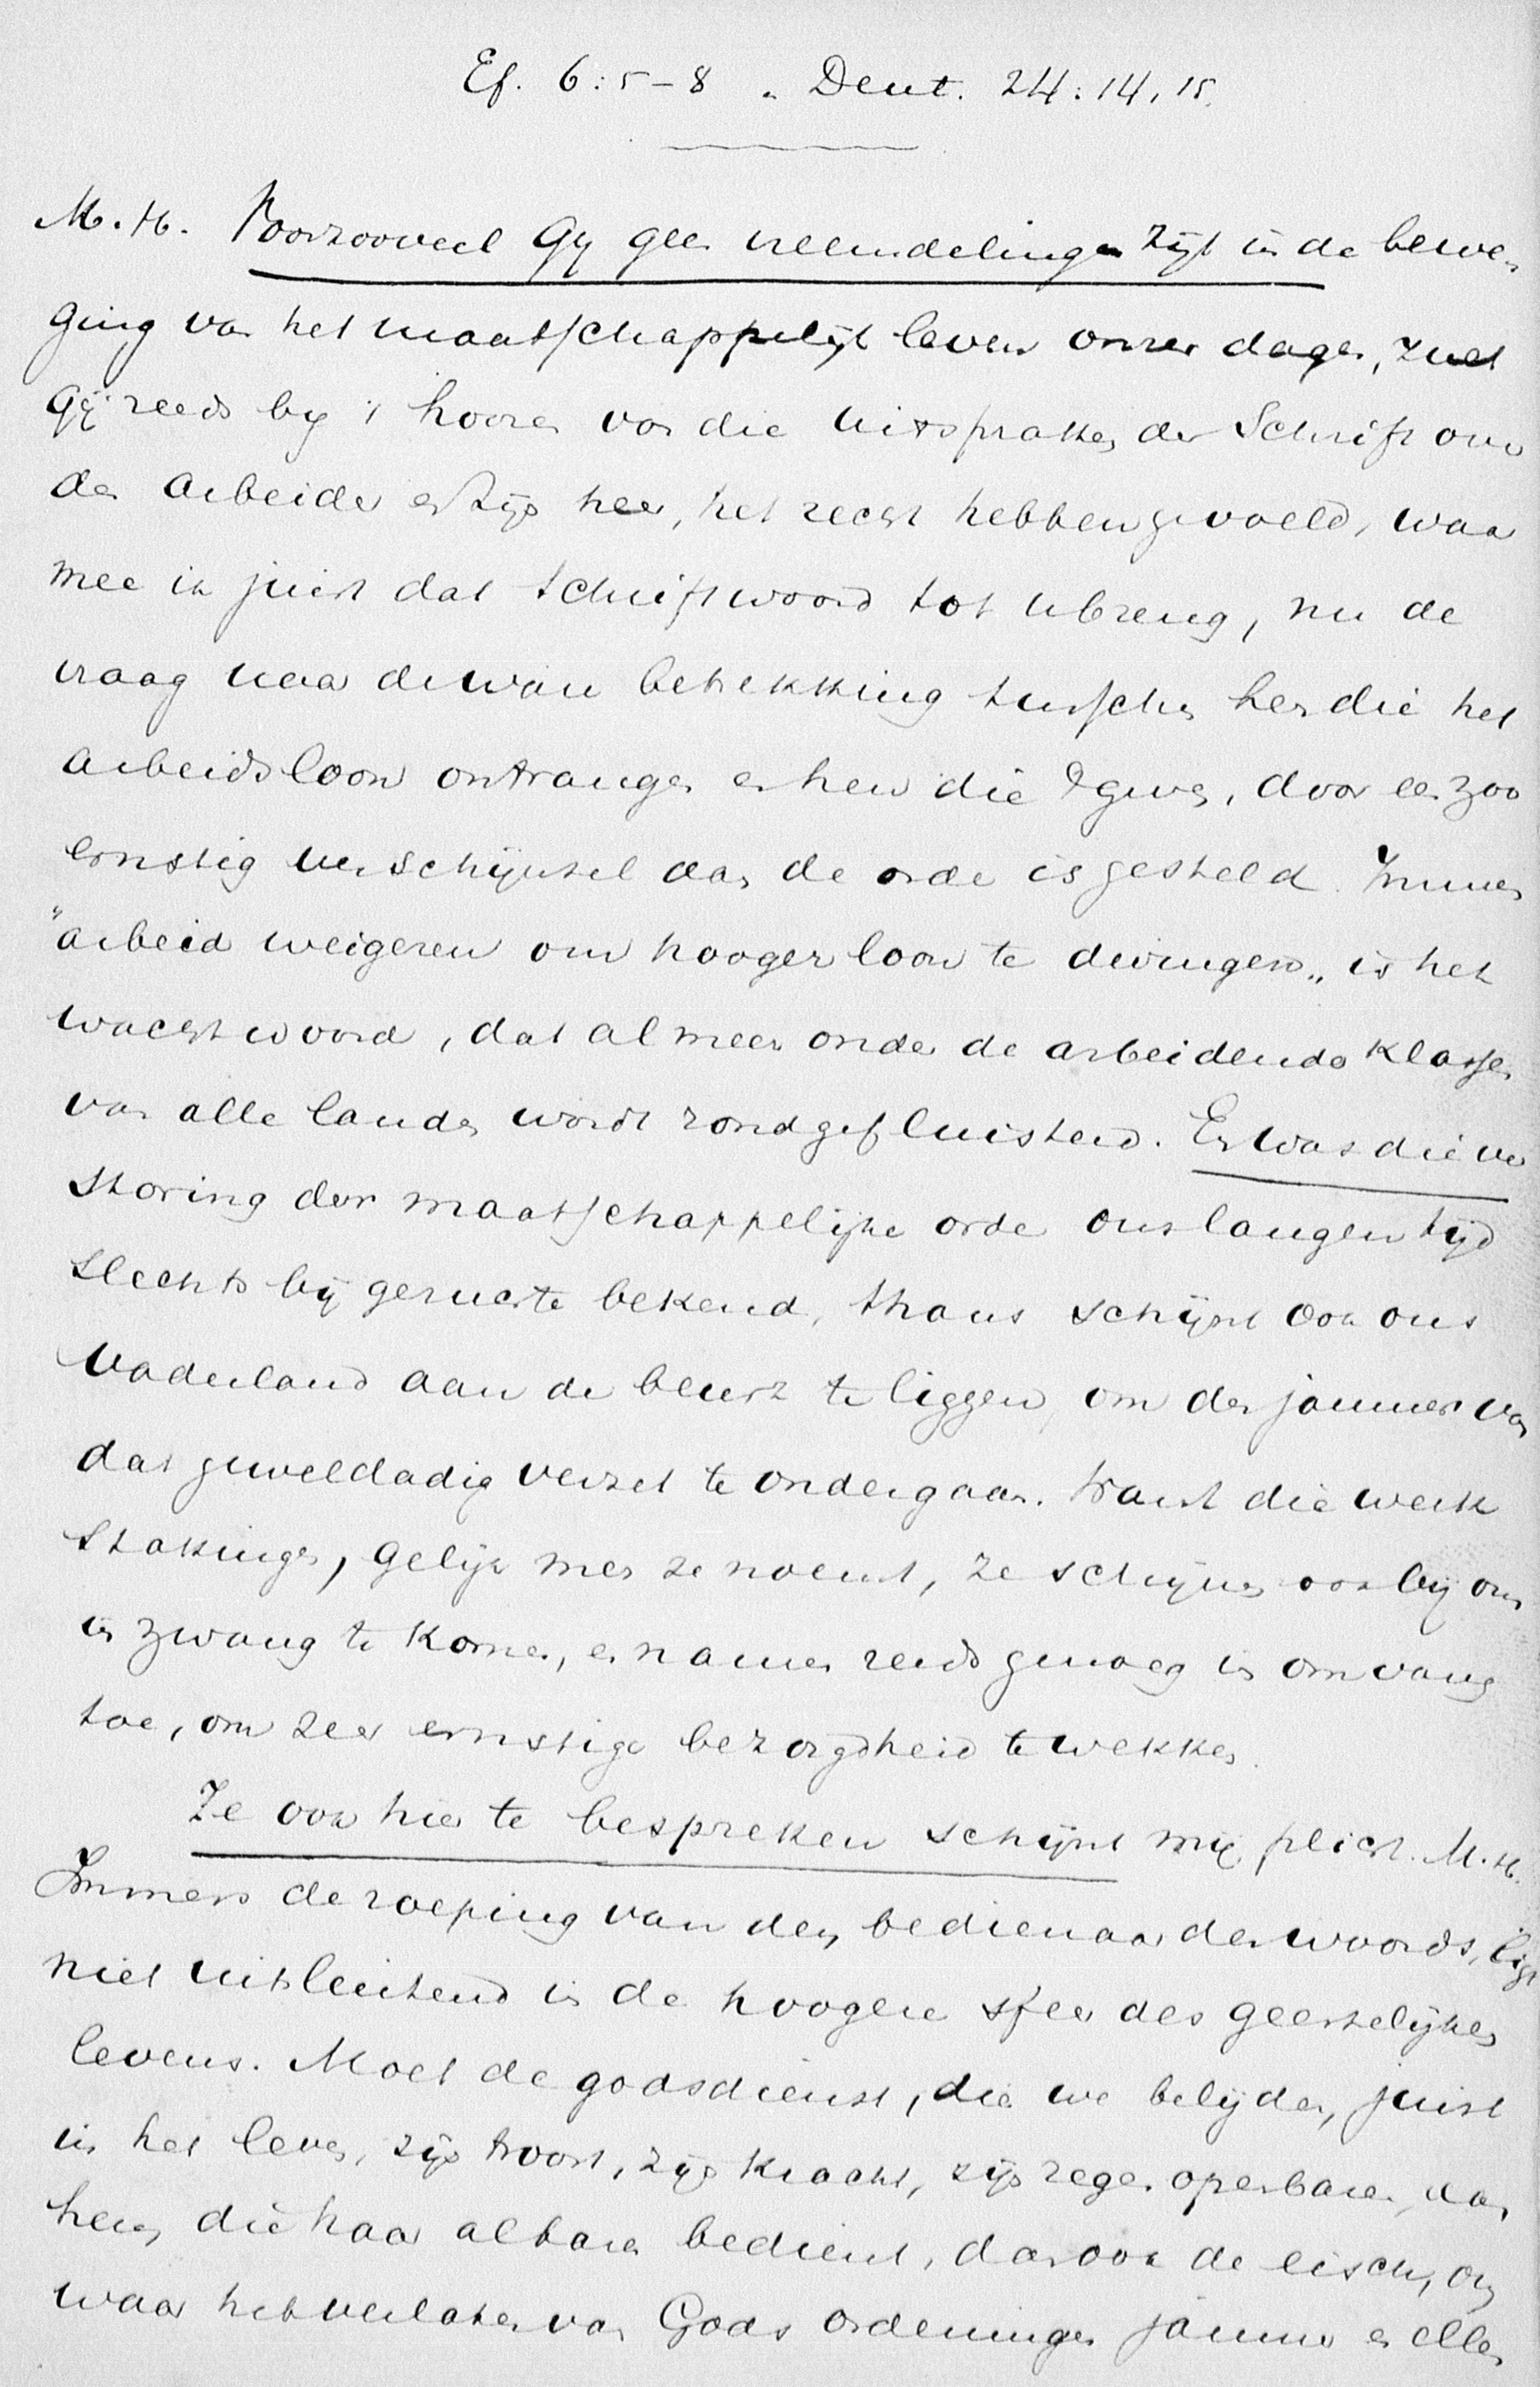 Ef. 6:5–8 . Deut. 24:14,15.
M.H. Voorzooveel Gy geen vreemdelingen zijt in de bewe-
ging van het maatschappelijk leven onzer dagen, zult
Gij reeds by 't hooren van die uitspraken der Schrift over
den arbeider en zijn heer, het recht hebben gevoeld, waar
mee ik juist dat Schriftwoord tot u breng, nu de
vraag naar de ware betrekking tusschen hen die het
arbeidsloon ontvangen en hen die 't geven, door een zoo
ernstig verschijnsel aan de orde is gesteld. Immers
"arbeid weigeren om hooger loon te dwingen„ is het
wachtwoord, dat al meer onder de arbeidende klassen
van alle landen wordt rondgefluisterd. Er was die ver
storing der maatschappelijke orde ons langen tijd
slechts bij geruchte bekend, thans schijnt ook ons
Vaderland aan de beurt te liggen, om den jammer van
dat gewelddadig verzet te ondergaan. Want die werk
stakingen, gelijk men ze noemt, ze schijnen ook bij ons
in zwang te komen, en namen reeds genoeg in omvang
toe, om zeer ernstige bezorgdheid te wekken.
Ze ook hier te bespreken schijnt mij plicht. M.H.
Immers de roeping van den bedienaar des woords, ligt
niet uitsluitend in de hoogere sfeer des geestelijken
levens. Moet de godsdienst, die we belijden, juist
in het leven, zijn troost, zijn kracht, zijn zegen openbaren, dan
heeft die haar altaren bedient, dan ook de eisch, om
waar het verlaten van Gods ordeningen jammer en ellen